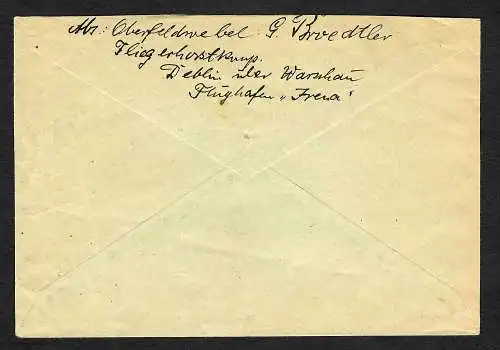 Abs.: Oberfeldwebel G. Broedtler
Fliegerhorstkomp.
Deblin über Warschau
Flughafen „Irena"